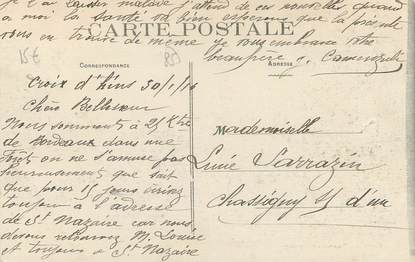 je t'ai laissée malade j'attend de ces nouvelles quand
a moi la santé va bien esperons que la présente
vous en trouve de même je vous embrasse votre
beau frère J.
CARTE POSTALE
15€
CORRESPONDANCE
ADRESSE
Croix d'hins 30/1/16
Chère Belle sœur
Nous sommes à 25 Ktre
de Bordeaux dans une
forêt on ne s'amuse pas
heureusement que sait
que pour 15 jours
toujours à l'adresse
de St Nazaire car nous
devons retourner M. Louise
est toujours a St Nazaire
Mademoiselle
Lucie Sarrazin
Chassigny